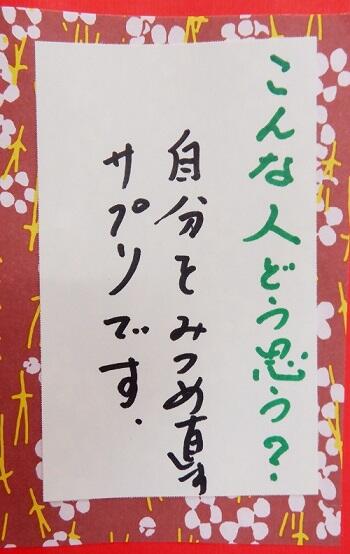 こんな人どう思う？
自分をみつめ直す
サプリです．